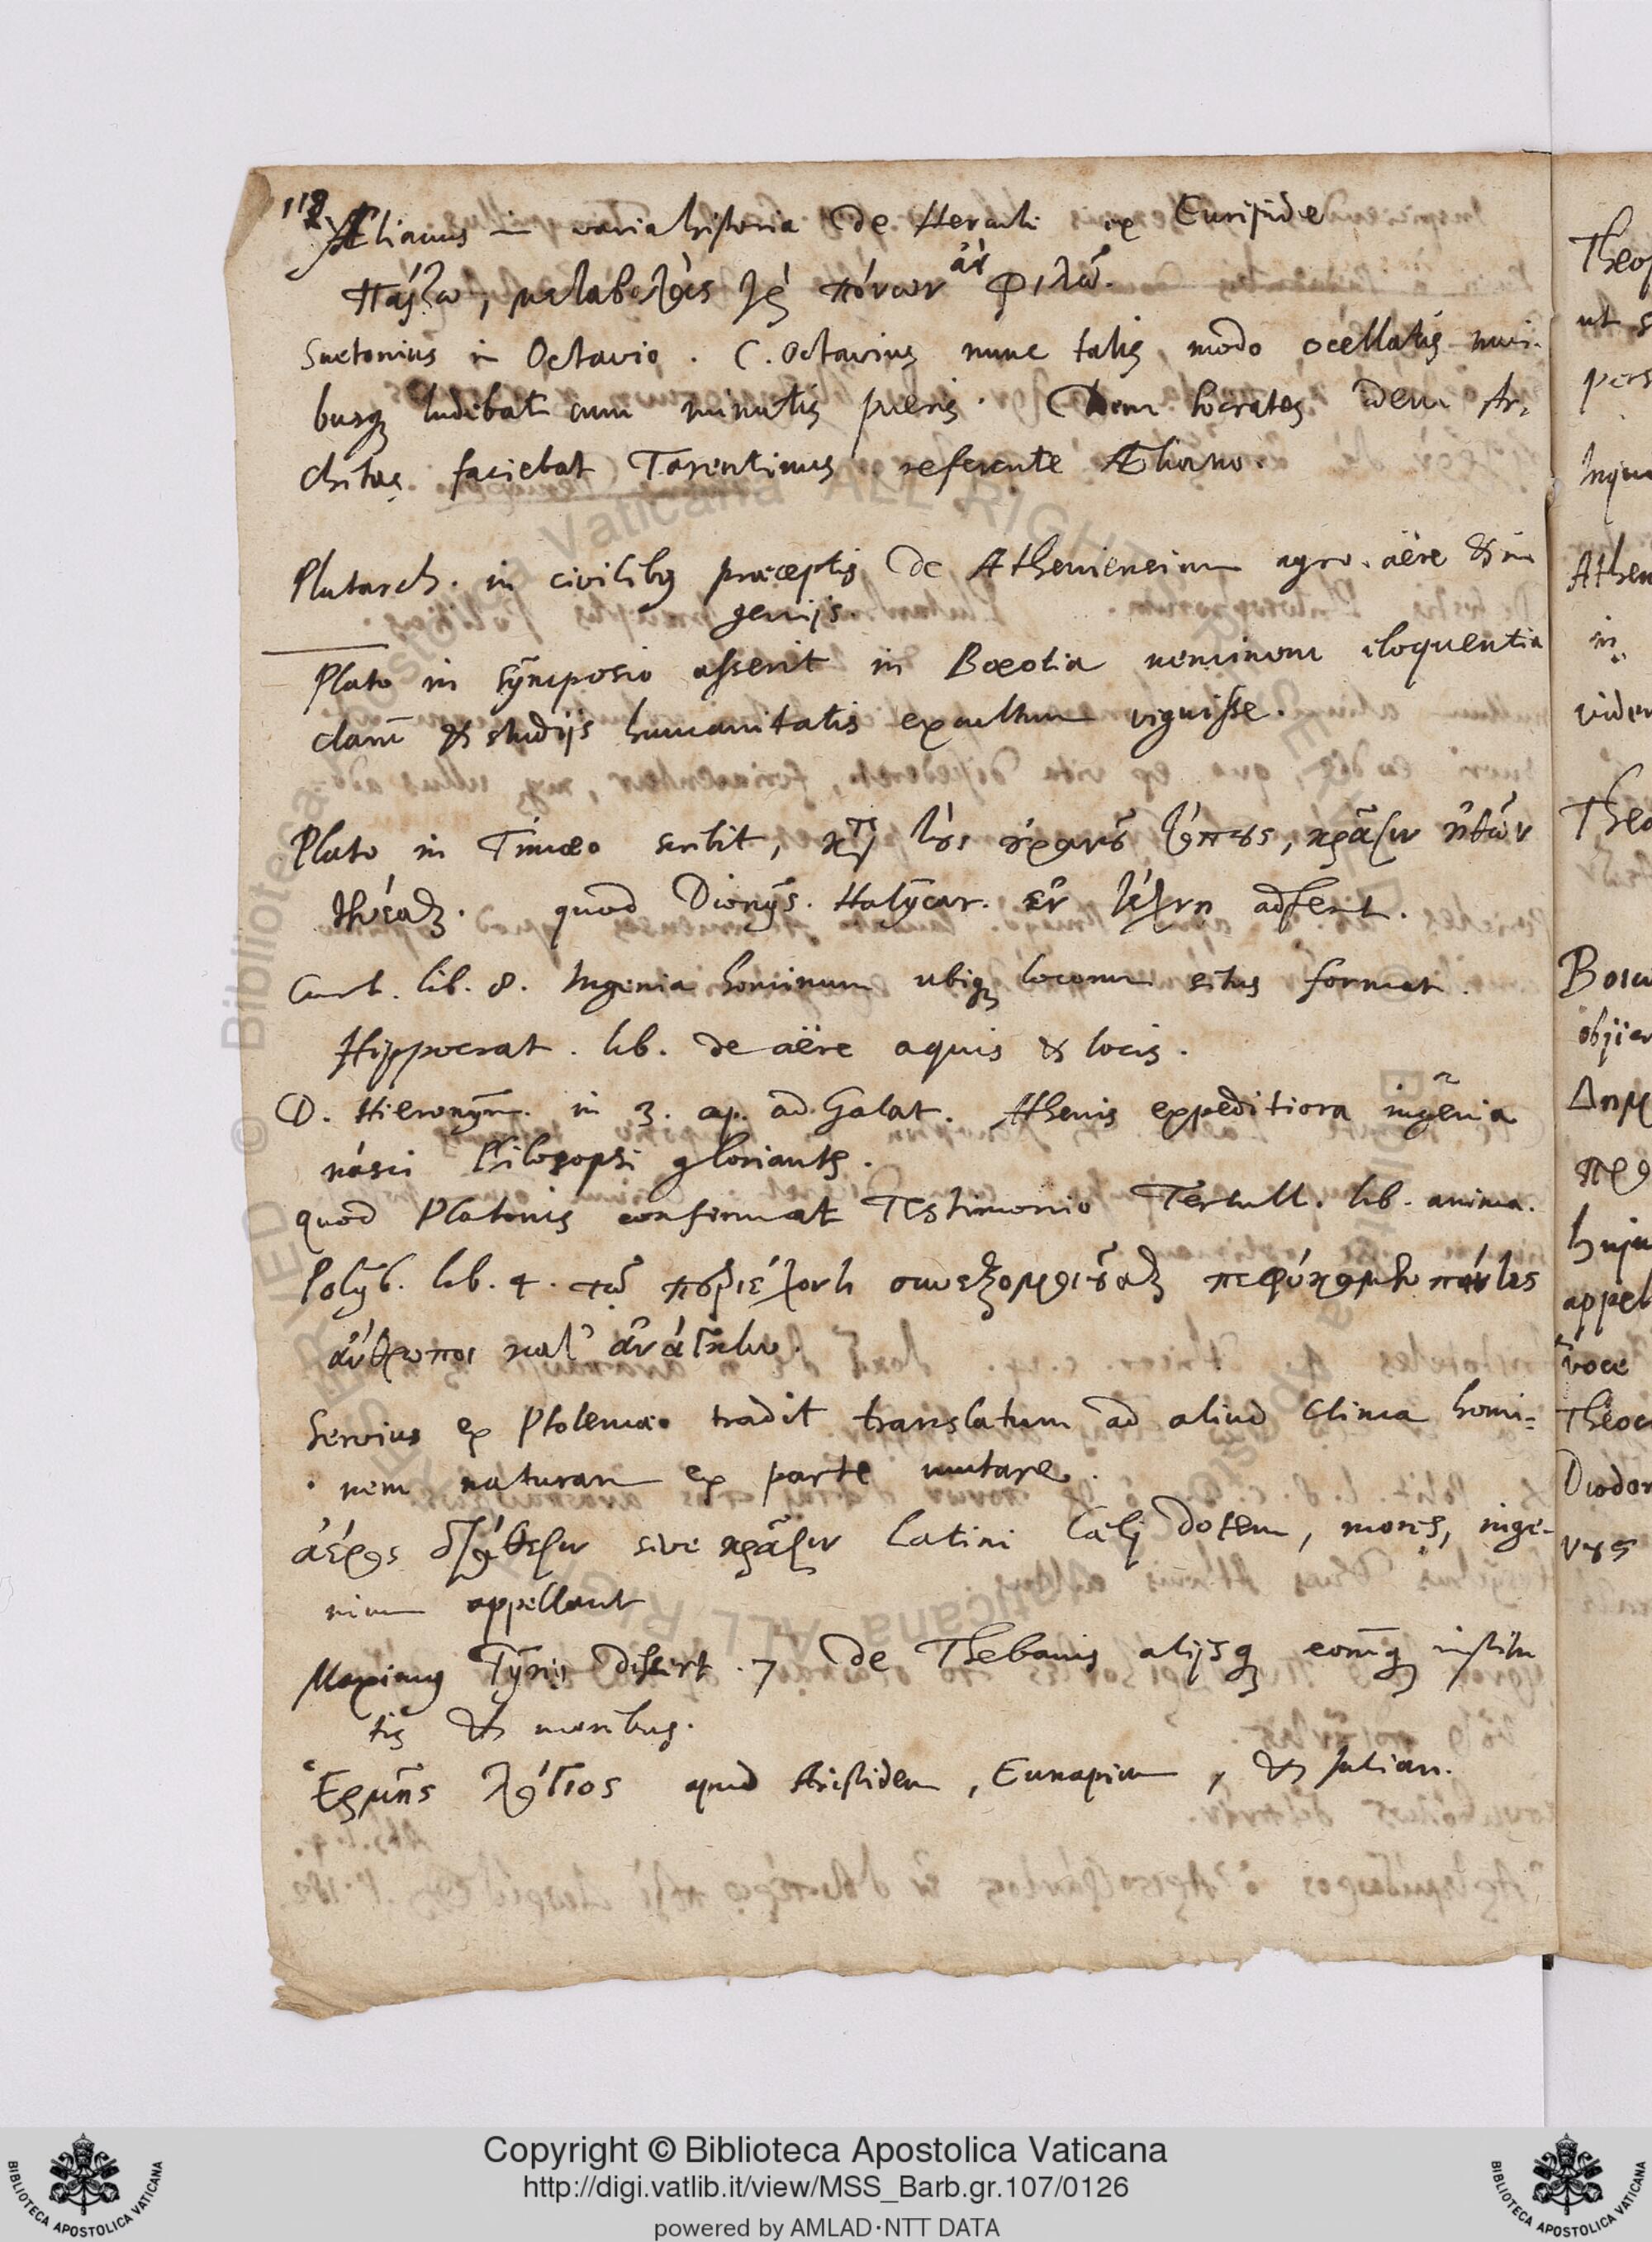 118
Ælianus in varia historia de Hercule ex Euripide
παίζω, μεταβολὰς γὰρ πόνων ἂν φιλῶ.
Suetonius in Octavio. C. Octavius nunc talis, modo ocellatis nuci-
busq ludebat cum minutis pueris. Idem Socrates idem Ar-
chitas faciebat Tarentinus referente Æliano.
Plutarch. in civilibus præceptis de Atheniensium agro aëre & in
genijs.
Plato in Symposio asserit in Bœotia neminem eloquentia
clarũ & studijs humanitatis excultum viguisse.
Plato in Timæo scribit, κατὰ τοὺς οὐρανοῦ τόπους, κρᾶσιν ἠθῶν
quod Dionys. Halycar. ἐν τέχνῃ adfert.
Curt. lib. 8. Ingenia hominum ubiq locorum situs format.
Hippocrat. lib. de aëre aquis & locis.
D. Hieronym. in 3. cap. ad Galat. Athenis expeditiora ingenia
nasci Philosophi gloriantur.
quod Platonis confirmat Testimonio Tertull. lib. anima.
Polyb. lib. 4. τῷ περιέχοντι συνεξομοιοῦσθαι πεφύκαμεν πάντες
ἄνθρωποι κατ' ἀνάγκην.
Servius ex Ptolemæo tradit translatum ad aliud clima homi-
nem naturam ex parte mutare.
ἀέρος διάθεσιν sive κρᾶσιν Latini Cæli dotem, mores, inge-
nium appellant
Maximus Tyrius dissert. 7 de Thebanis alijsq eorumq institu
tis & moribus.
Ἑρμῆς λόγιος apud Aristidem, Eunapium, & Julian.
Copyright © Biblioteca Apostolica Vaticana
http://digi.vatlib.it/view/MSS_Barb.gr.107/0126
powered by AMLAD·NTT DATA